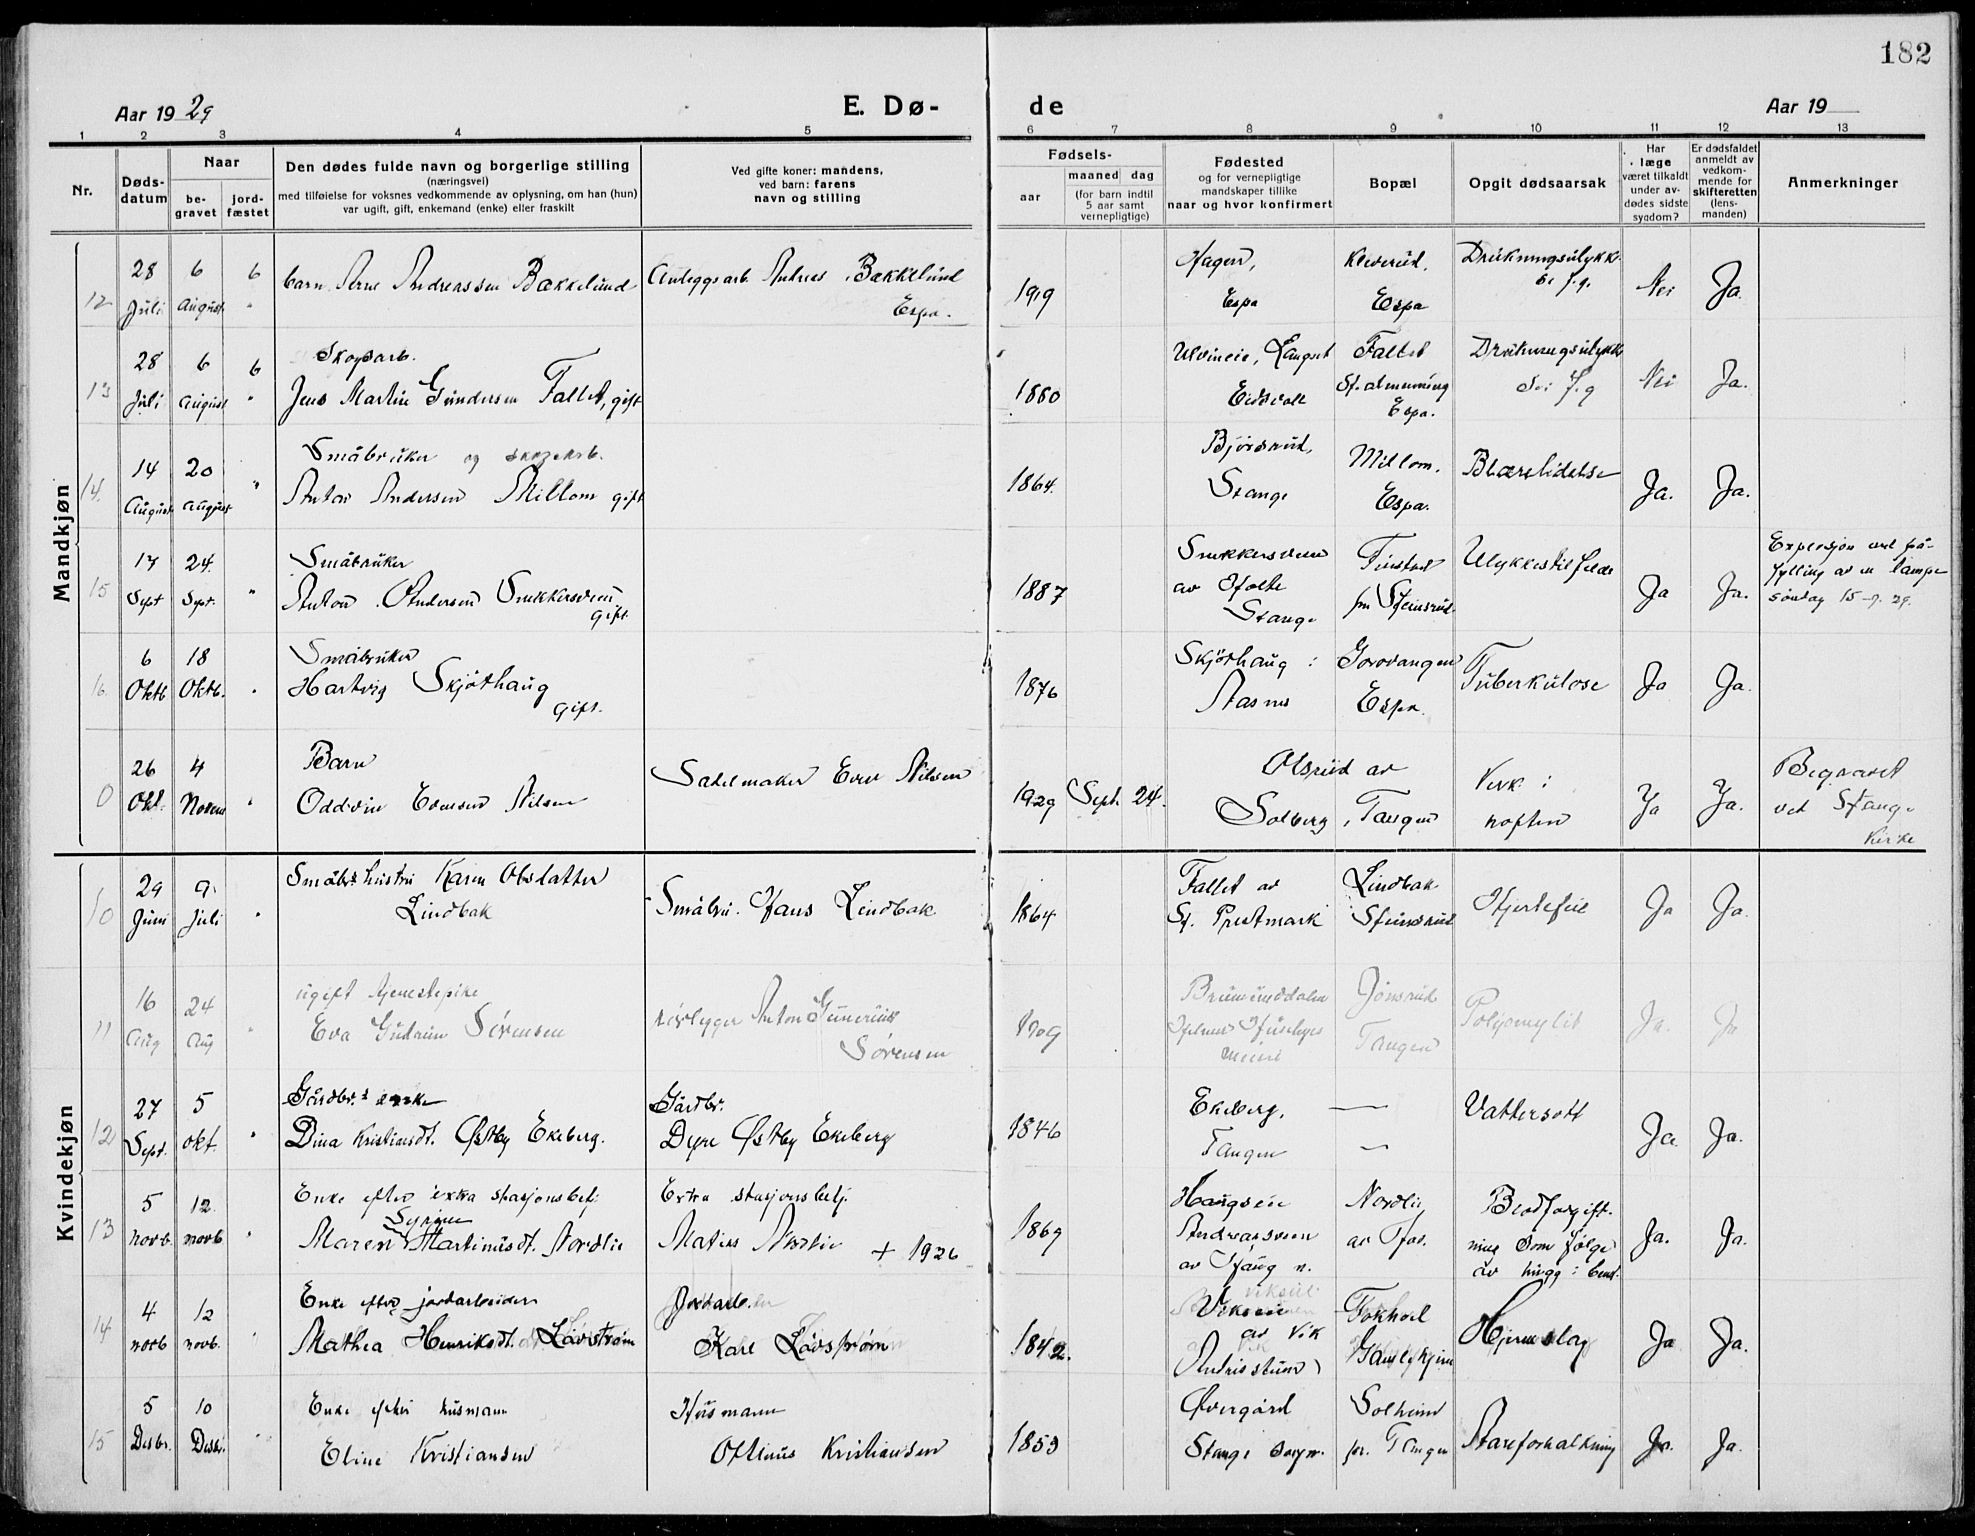 182
Aar 1929
E. Dø-
de
Aar 19
1 2 3 4 5 6 7 8 9 10 11 12 13
Nr.
Døds-
datum
Naar
be-
gravet
jord-
fæstet
Den dødes fulde navn og borgerlige stilling
(næringsvei)
med tilføielse for voksnes vedkommende av oplysning, om han (hun)
var ugift, gift, enkemand (enke) eller fraskilt
Ved gifte koner: mandens,
ved barn: farens
navn og stilling
Fødsels-
aar
maaned dag
(for barn indtil
5 aar samt
vernepligtige)
Fødested
og for vernepligtige
mandskaper tillike
naar og hvor konfirmert
Bopæl
Opgit dødsaarsak
Har
læge
været tilkaldt
under av-
dødes sidste
sygdom?
Er dødsfaldet
anmeldt av
vedkom-
mende for
skifteretten
(lens-
manden)
Anmerkninger
Mandkjøn
28 6 6 barn Arne Andreassen Bakkelund Anleggsarb. Andreas Bakkelund Hagen, Drukningsulykke
12 Juli August " Espa. 1919 Espa Espa Nei Ja.
28 6 6 Skogsarb. Ulvineie, Langset Fallet Drukningsulykke
13 Juli August " Jens Martin Gundersen Fallet, gift 1880 Eidsvoll St. almenning Nei Ja.
Espa.
14 20 Småbruker og skogsarb. Bjørsrud, Millom, Blærelidelse
14. August August " Anton Andersen Millom gift 1864. Stange Espa. Ja. Ja.
17 24. Småbruker Snekkersveen Finstad Ulykkestilfelde Explosjon ved på-
15 Sept Sept. " Anton Andersen Snekkersveen 1887 av Holte pr Steinsrud Ja Ja. fylling av en lampe
gift. Stange søndag 15-9.29.
6 18 Småbruker Skjøthaug i Gorovangen Tuberkulose
16. Oktb. Oktb. " Hartvig Skjøthaug 1876 Aasnes Espa. Ja Ja.
gift.
26 4 Barn Sadelmaker Even Nilsen Olsrud av Verk i Begravet
0 Okt. Novem " Oddvin Evensen Nilsen 1929 Sept. 24. Solberg, Tangen hoften Ja Ja. ved Stange
Kirke
Kvindekjøn
29 9 Småbr.s hustru Karen Olsdatter Fallet av Lindbak
10 Juni Juli " Lindbak Småbru. Hans Lindbak 1864 St. Prestmark Steinsrud Hjertefeil Ja Ja.
16 24 ugift tjenestepike Anton Gunerius Brumunddalen Jønsrud
11 Aug Aug " Eva Gudrun Sørensen Sørensen 1909 Tangen Polyomylit Ja. Ja
27 5 Gårdbr.s enke Gårdbr. Ekeberg, — Vattersott
12 Sept. okt. " Dina Kristiansdt. Østby Ekeberg. Dyre Østby Ekeberg 1846 Tangen — Ja. Ja.
5 12 Enke efter extra stasjonsbetj. Extra stasjonsbetj. Haugseie Nordlie Blodforgift-
Syrine
13 novb. novb " Maren Martinusdt. Nordlie Matias Nordlie + 1926 1869 Andreassveen ning som følge Ja. Ja.
av Haug n. av hugg i benet.
4 12 Enke efter jordarbeider Jordarb. Vikseie Fokhol
14 novb novb. " Mathea Henriksdt. Lövström Karl Lövström 1842. av Vik Hjerneslag Ja Ja.
5 10 Enke efter husmann Husmann Øvergård Solheim
15 Desbr. Desbr. " Eline Kristiansen Oltinus Kristiansen 1853 Stange sogn. pr. Tangen Åreforkalkning Ja. Ja.